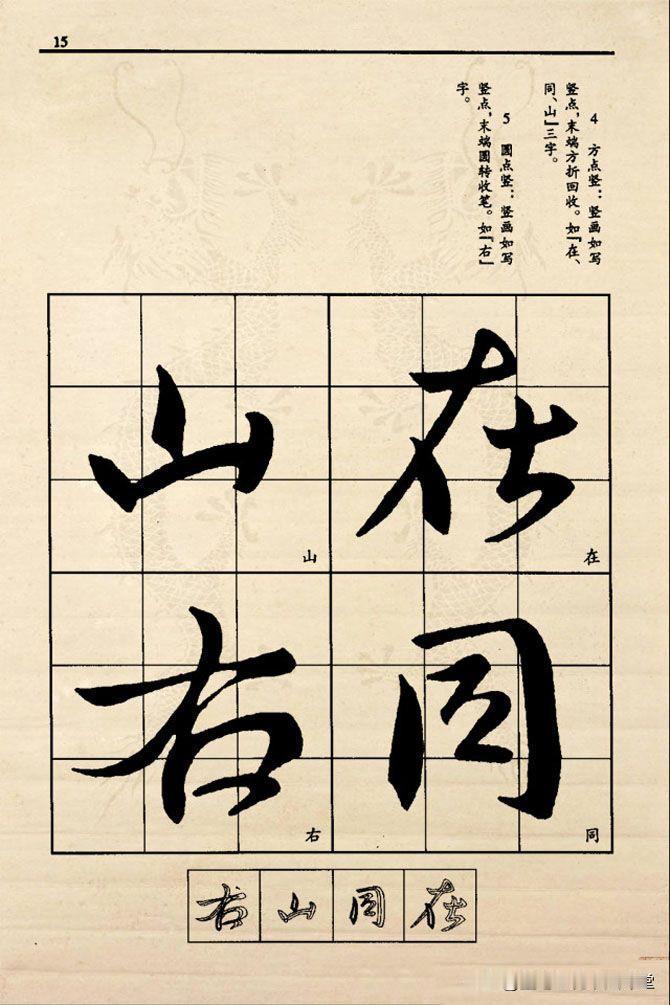 15
4 方点竖：竖画如写
竖点，末端方折回收。如『在、
同、山』三字。
5 圆点竖：竖画如写
竖点，末端圆转收笔。如『右』
字。
在
在
同
同
山
山
右
右
右山同在